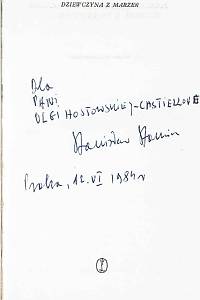 DZIEWCZYNA Z MARZEŃ
Dla
PANI
OLGI HOSTOWSKIEJ-CASTIELLOVÉ
Stanisław
Praha, 12. VI 1984 r